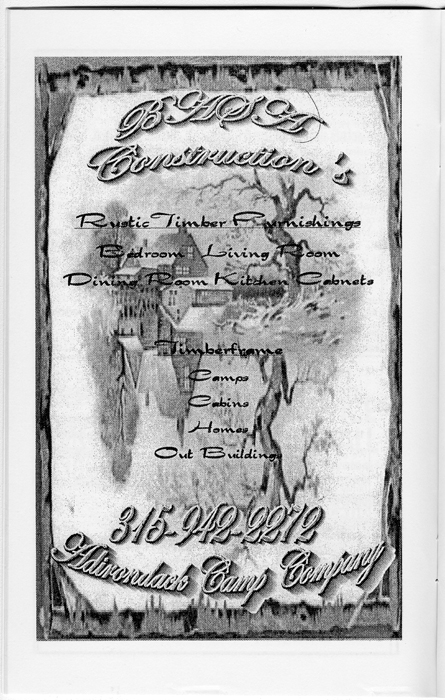 BASA
Construction's
Rustic Timber Furnishings
Bedroom Living Room
Dining Room Kitchen Cabnets
Timberframe
Camps
Cabins
Homes
Out Buildings
315-942-2272
Adirondack Camp Company